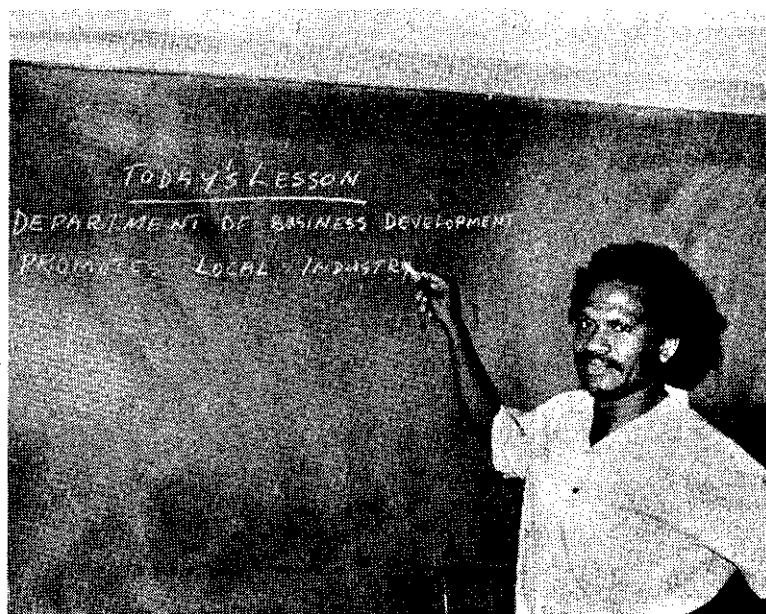 TODAY'S LESSON
DEPARTMENT OF BUSINESS DEVELOPMENT
PROMOTES LOCAL INDUSTRY